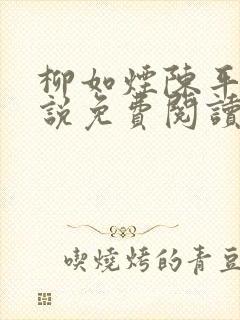 柳如煙陳平
說免費閱讀
喫燒烤的青豆